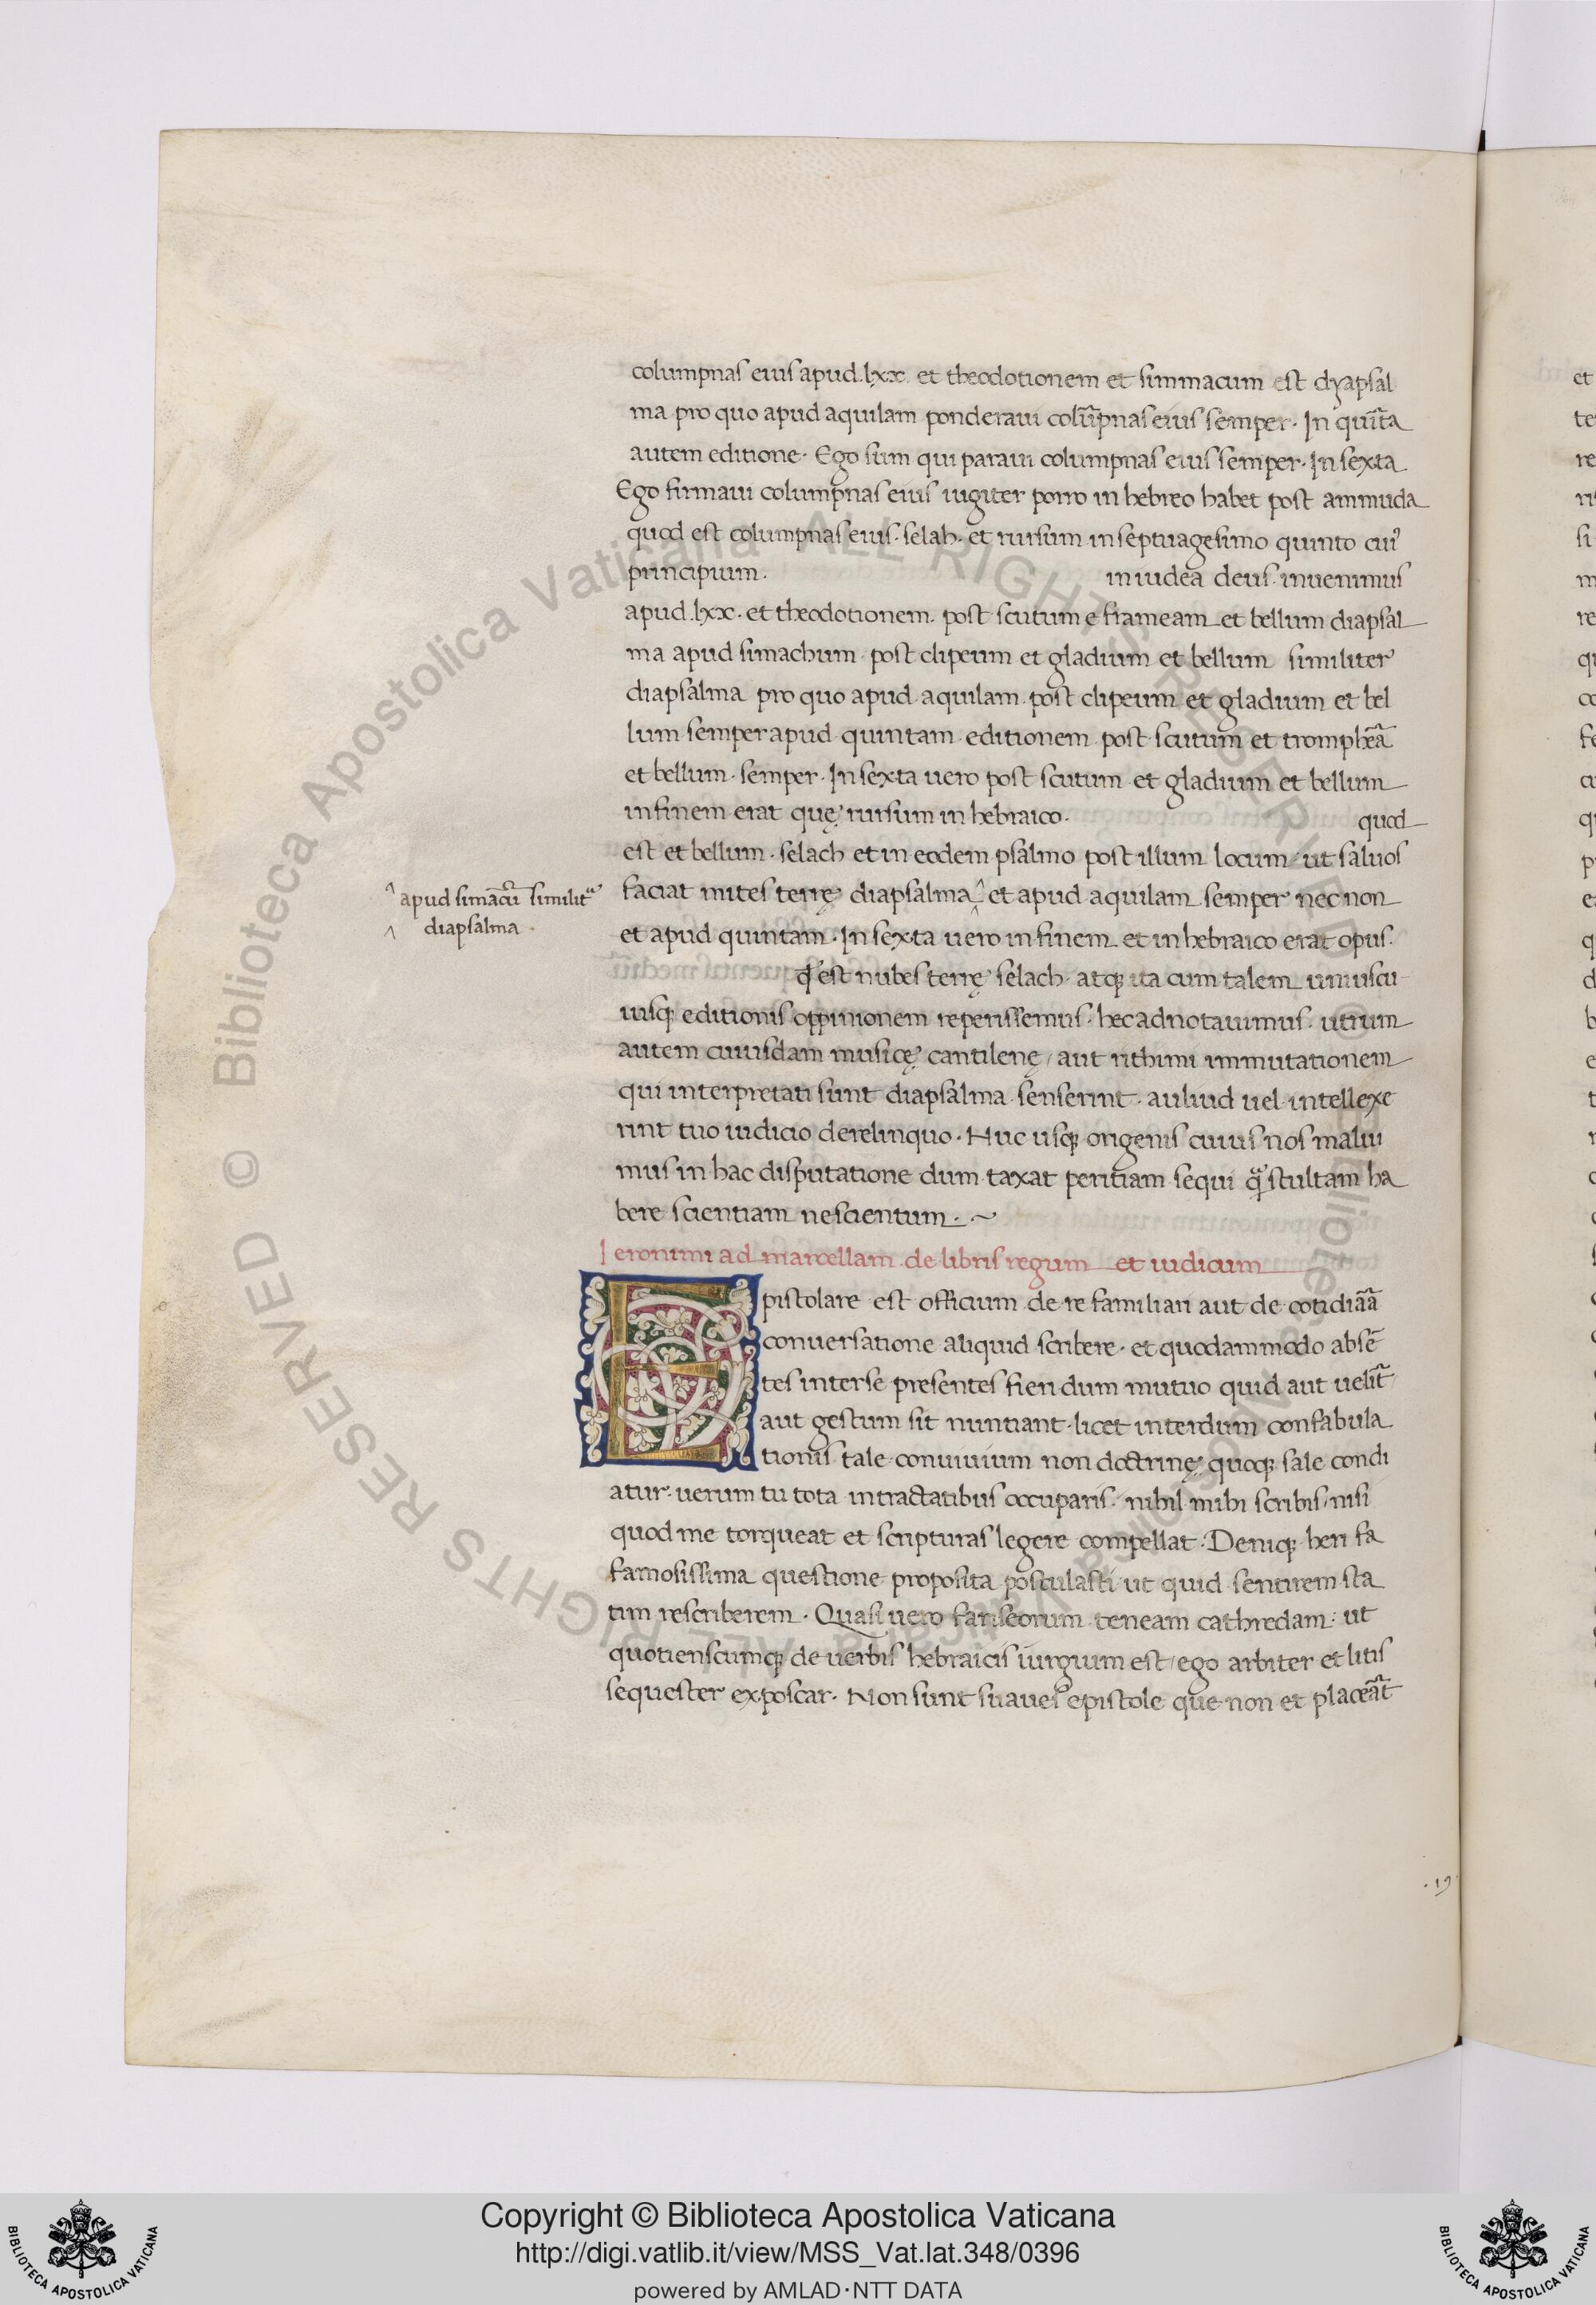 columpnas eius apud .lxx. et theodotionem et simmacum est dyapsal
ma pro quo apud aquilam ponderaui colūpnas eius semper. In quīta
autem editione. Ego sum qui paraui columpnas eius semper. In sexta
Ego firmaui columpnas eius iugiter porro in hebreo habet post ammuda
quod est columpnas eius. selah. et rursum in septuagesimo quinto cui'
principium. in iudea deus. inuenimus
apud .lxx. et theodotionem. post scutum e frameam et bellum diapsal
ma apud simachum post clipeum et gladium et bellum similiter
diapsalma pro quo apud aquilam post clipeum et gladium et bel
lum semper apud quintam editionem post scutum et tromphēā
et bellum. semper. In sexta uero post scutum et gladium et bellum
in finem erat quę rursum in hebraico. quod
est et bellum. selach et in eodem psalmo post illum locum / ut saluos
faciat mites terrę diapsalma ^ et apud aquilam semper nec non
^ apud simācū similit
^ diapsalma.
et apud quintam. In sexta uero in finem et in hebraico erat opus.
qđ est nubes terrę selach. atq; ita cum talem uniuscu
iusq; editionis oppinionem reperissemus. hec adnotauimus. utrum
autem cuiusdam musicę cantilenę / aut rithimi immutationem
qui interpretati sunt diapsalma senserint. auliud uel intellexe
rint tuo iudicio derelinquo. Huc usq; origenis cuius nos malui
mus in hac disputatione dum taxat peritiam sequi q̃ stultam ha
bere scientiam nescientum. ~
Ieronimi ad marcellam de libris regum et iudicum
Epistolare est officium de re familiari aut de cotidiāā
conuersatione aliquid scribere. et quodammodo absē
tes inter se presentes fieri dum mutuo quid aut uelīt
aut gestum sit nuntiant. licet interdum confabula
tionis tale conuiuium non doctrinę quoq; sale condi
atur. uerum tu tota in tractatibus occuparis. nihil mihi scribis / nisi
quod me torqueat et scripturas legere compellat. Deniq; heri fa
famosissima questione proposita postulasti ut quid sentirem sta
tim rescriberem. Quasi uero fariseorum teneam cathredam: ut
quotienscumq; de uerbis hebraicis iurgium est / ego arbiter et litis
sequester exposcar. Non sunt suaues epistole que non et placeāt
.19.
© Biblioteca Apostolica Vaticana ALL RIGHTS RESERVED © Biblioteca Apostolica Vaticana ALL RIGHTS RESERVED
Copyright © Biblioteca Apostolica Vaticana
http://digi.vatlib.it/view/MSS_Vat.lat.348/0396
powered by AMLAD·NTT DATA
BIBLIOTECA APOSTOLICA VATICANA
BIBLIOTECA APOSTOLICA VATICANA